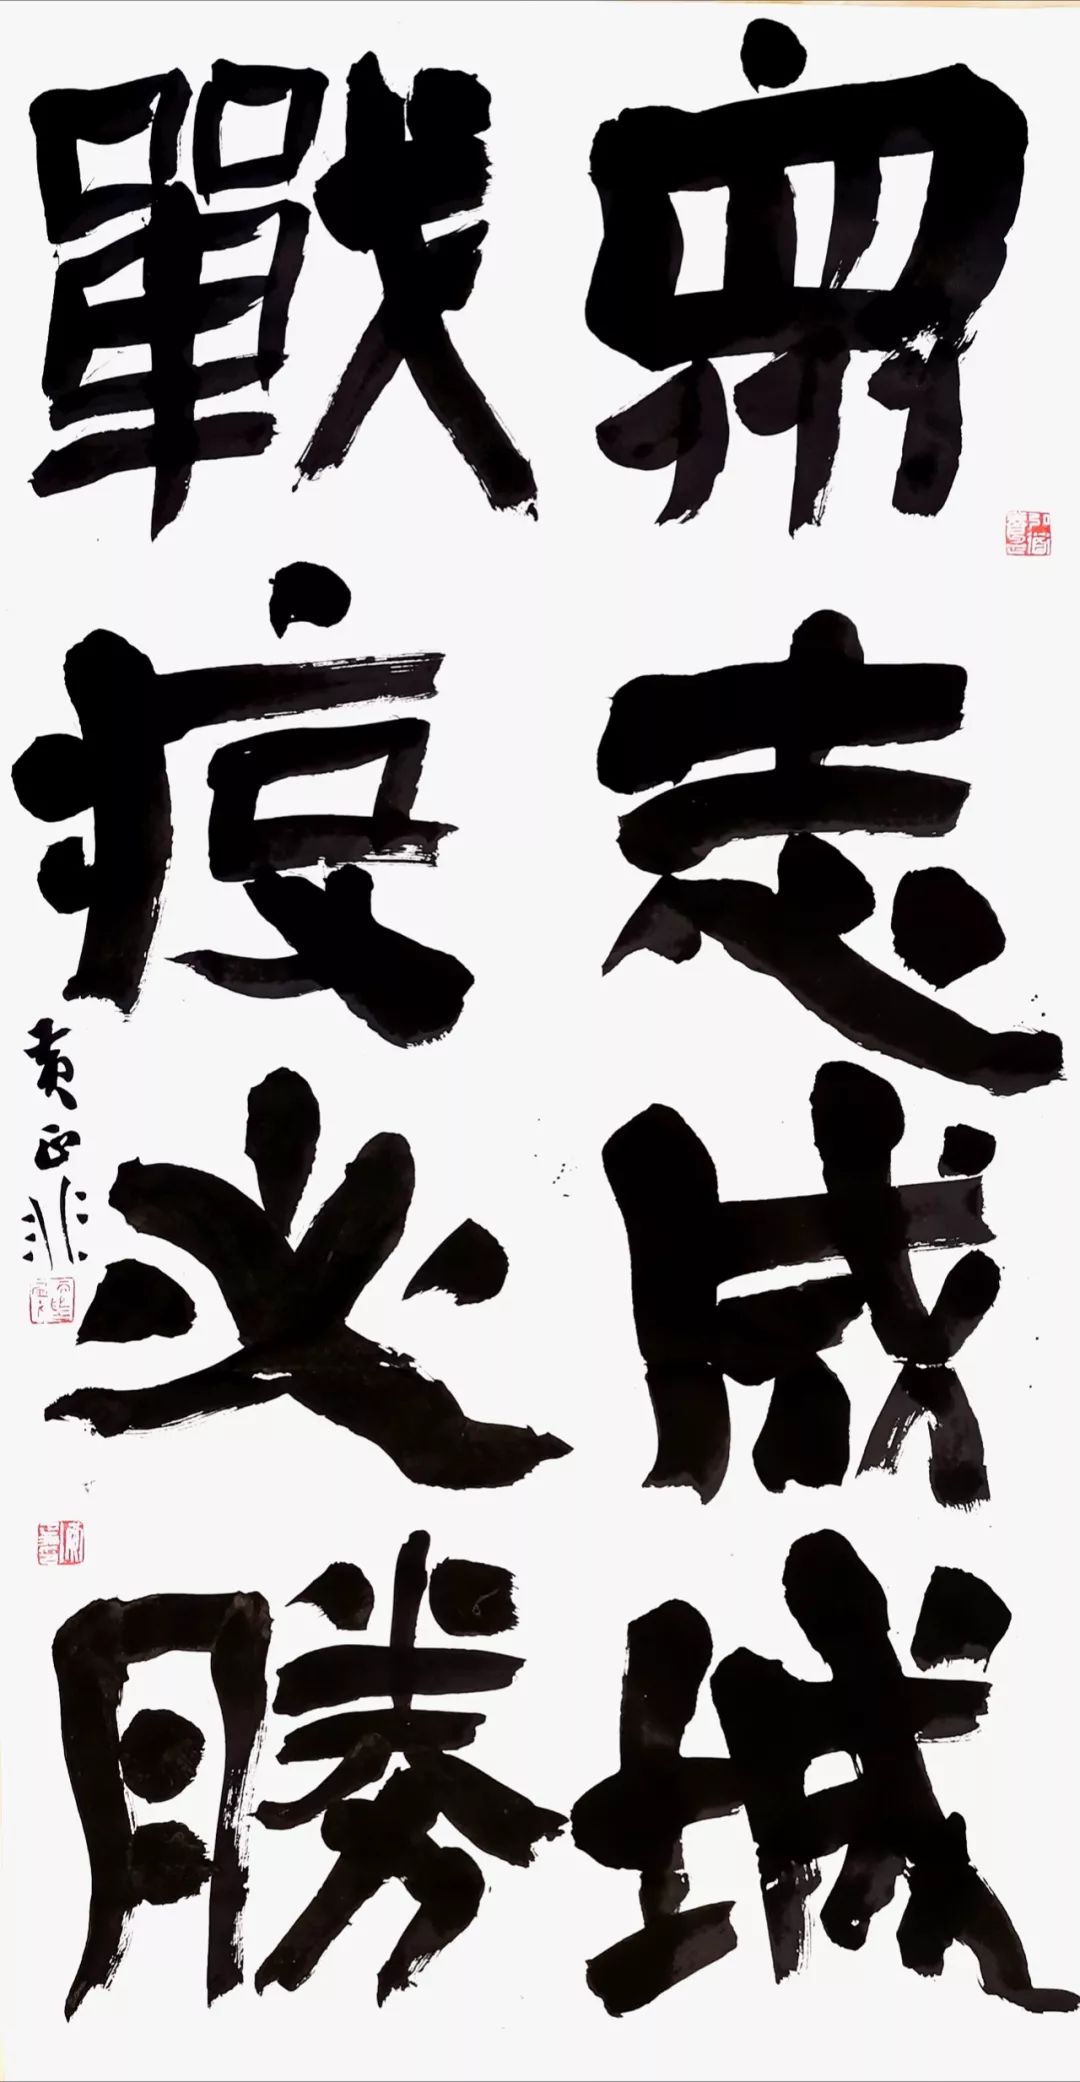 眾志成城
戰疫必勝
黄正非